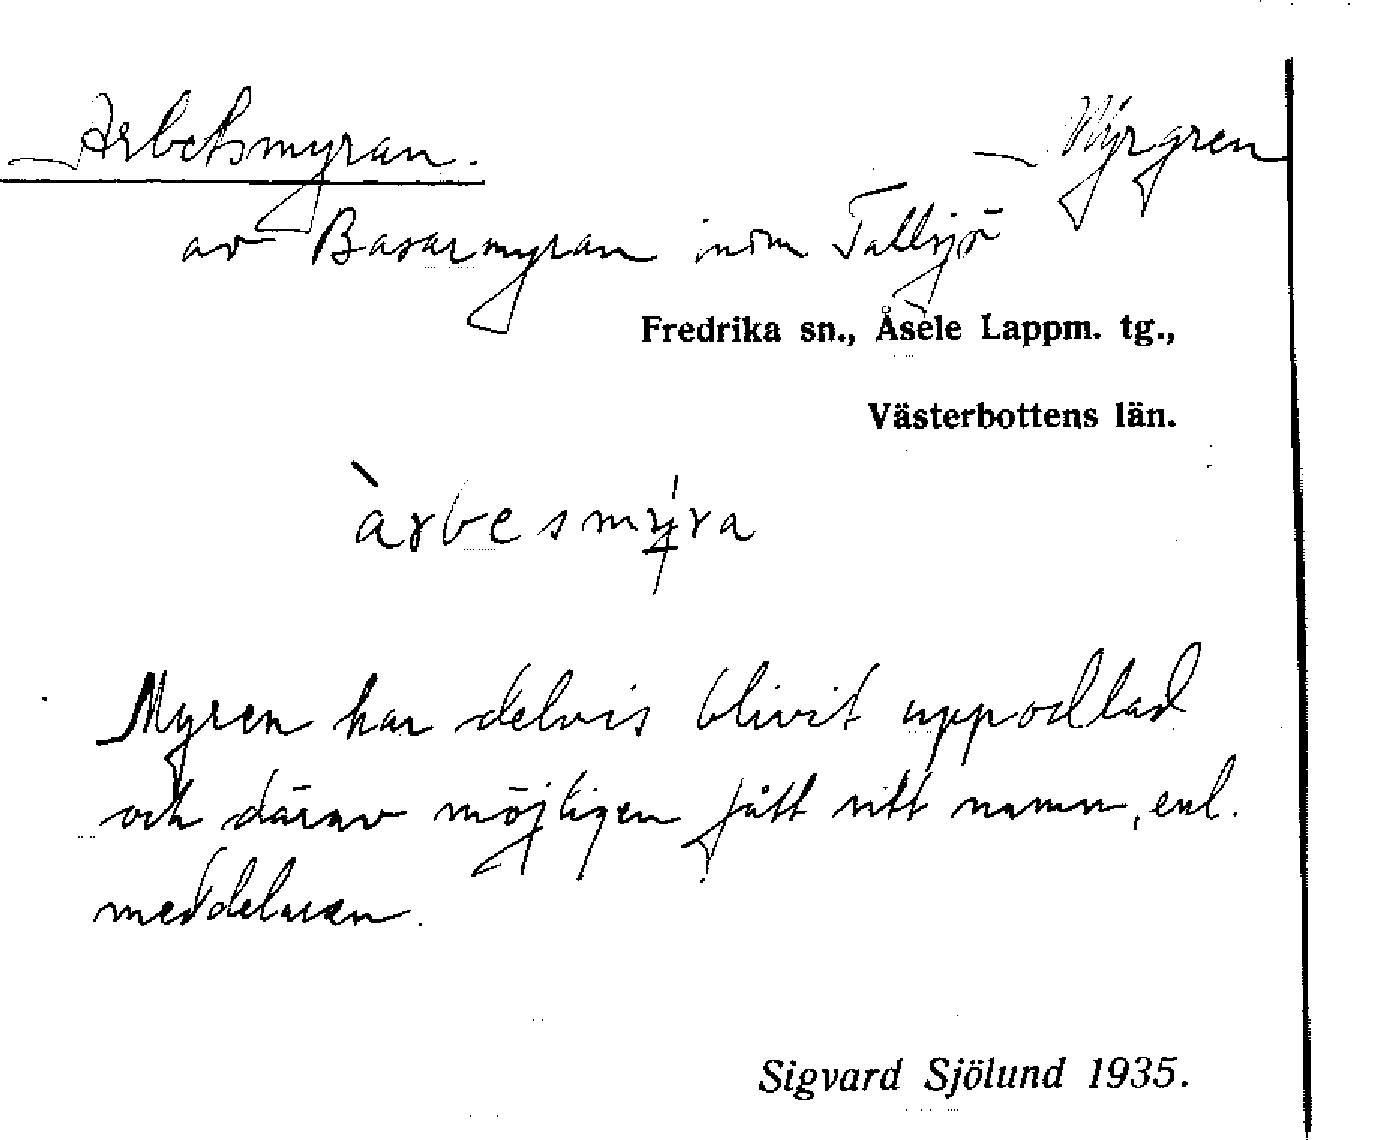 Arbetsmyran. Myrgren
av Basarmyran inom Tallsjö
Fredrika sn., Åsele Lappm. tg.,
Västerbottens län.
àrbesmýra
Myren har delvis blivit uppodlad
och därav möjligen fått sitt namn, enl.
meddelaren.
Sigvard Sjölund 1935.